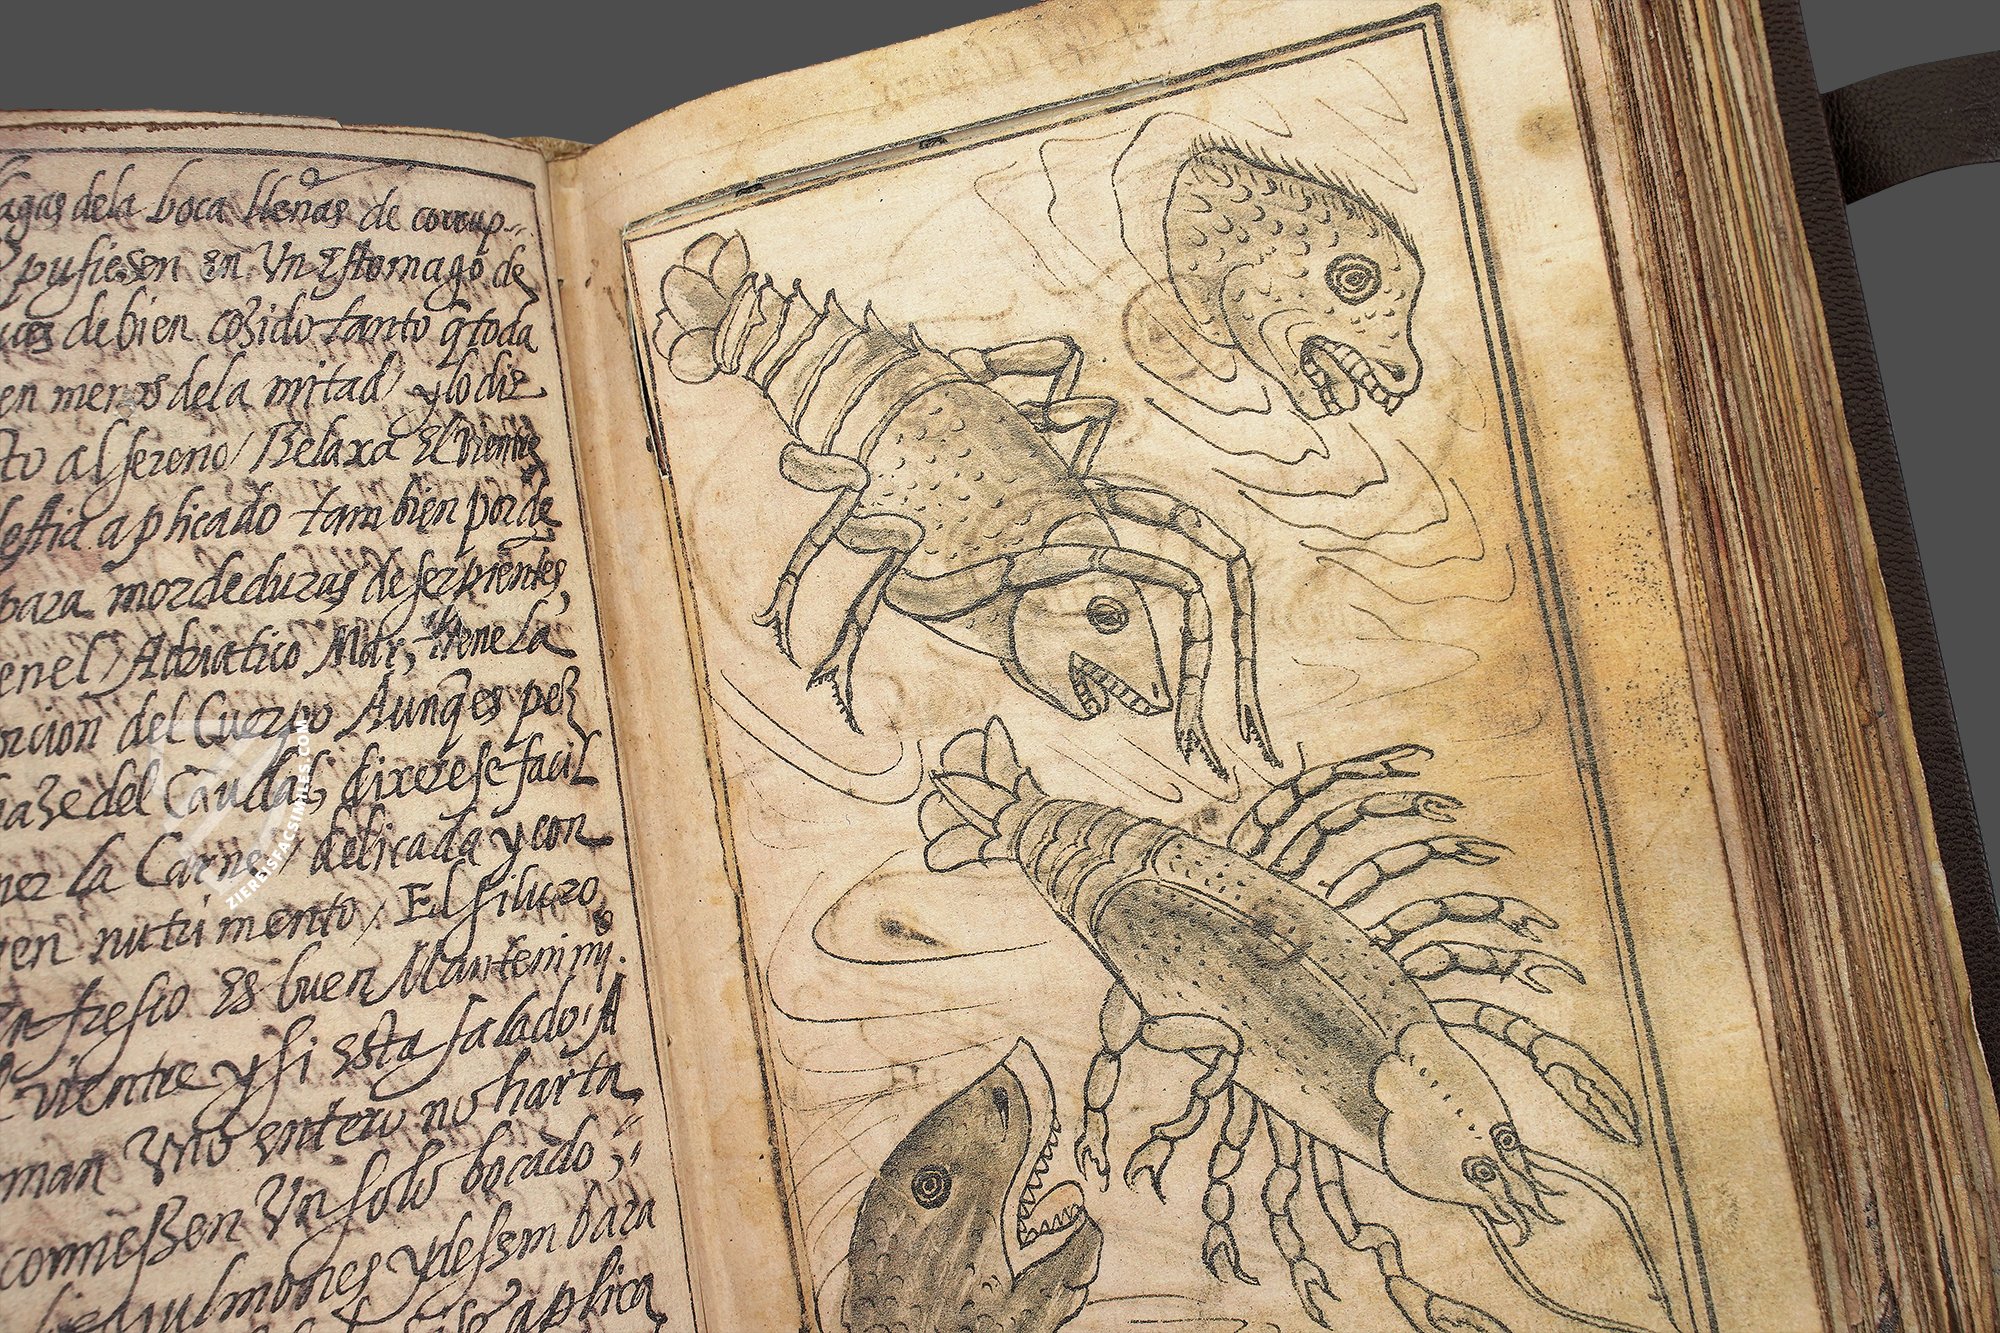 agas dela boca llenas de corrup-
pusiesen en Vn Estomago de
cosido tanto q̃ toda
en menos dela mitad y lo diz
to al sereno / Relaxa El Vientre
aplicado tambien por de
bara mordeduras de serpientes,
en el Adriatico Mar, tiene la
orcion del Cuerpo Aunq̃ es pez
del Caudal, dixerese facil
ner la Carne delicada y con
en nutrimento / El siluro
fresco Es buen Mantenimi.
vientre y si Esta salado / A
man Vno entero no harta
comiessen Vn solo bocado;
pulmones y desembara
aplica
ZIEREISFACSIMILES.COM